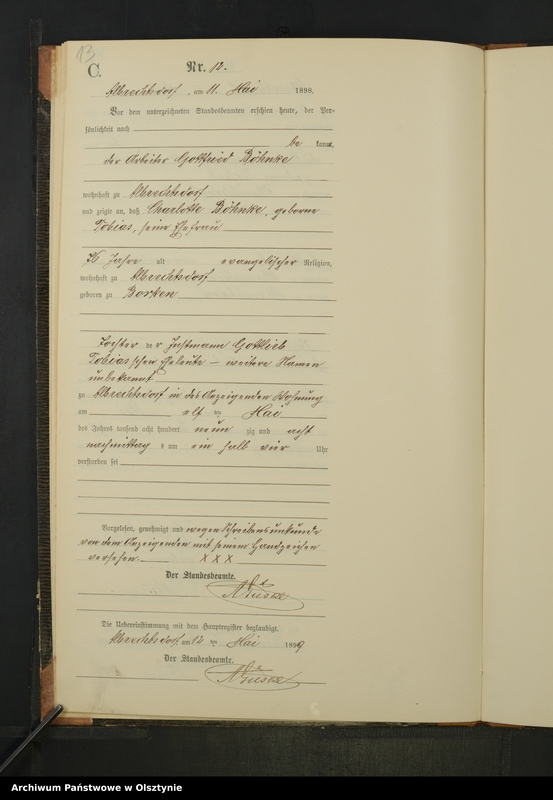 13
C.
Nr. 12.
Albrechtsdorf, am 11. Mai 1898.
Vor dem unterzeichneten Standesbeamten erschien heute, der Per-
sönlichkeit nach
be kannt,
der Arbeiter Gottfried Böhnke
wohnhaft zu Albrechtsdorf
und zeigte an, daß Charlotte Böhnke, geborne
Tobias, seine Ehefrau
Jahre alt evangelischer Religion,
wohnhaft zu Albrechtsdorf
geboren zu Borken
Tochter der Instmann Gottlieb
Tobias'schen Eheleute – weitere Namen
unbekannt
zu Albrechtsdorf in des Anzeigenden Wohnung
am elf ten Mai
des Jahres tausend acht hundert neun zig und acht
nachmittag s um ein halb vier Uhr
verstorben sei
Vorgelesen, genehmigt und wegen Schreibensunkunde
von dem Anzeigenden mit seinem Handzeichen
versehen. X X X
Der Standesbeamte.
Die Uebereinstimmung mit dem Hauptregister beglaubigt.
Albrechtsdorf, am 12 ten Mai 1898
Der Standesbeamte.
Archiwum Państwowe w Olsztynie